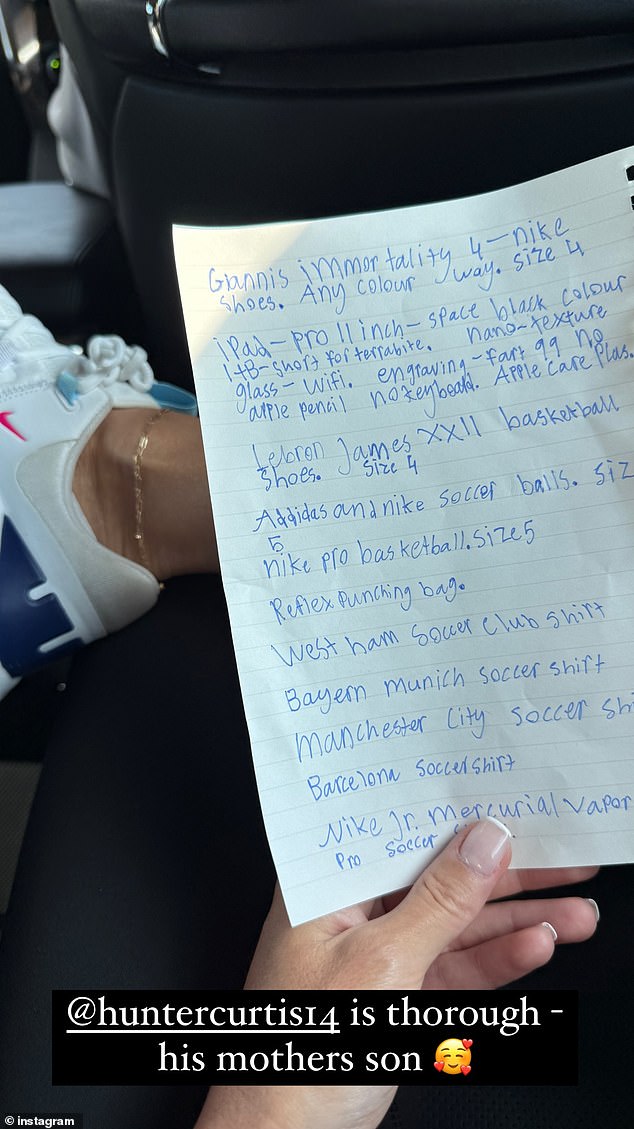 Giannis immortality 4-nike
shoes. Any colour way. size 4
iPad-pro 11 inch- space black colour
1tB-short for terrabite. nano-texture
glass- Wifi. engraving-fart 99 no
apple pencil no keyboard. Apple care Plus.
Lebron James XXII basketball
shoes. size 4
Addidas and nike soccer balls. siz
5
nike pro basketball. size 5
Reflex punching bag.
West ham soccer club shirt
Bayern munich soccer shirt
Manchester City soccer shi
Barcelona soccer shirt
Nike Jr. mercurial vapor
Pro soccer
@huntercurtis14 is thorough -
his mothers son 🥰
© instagram